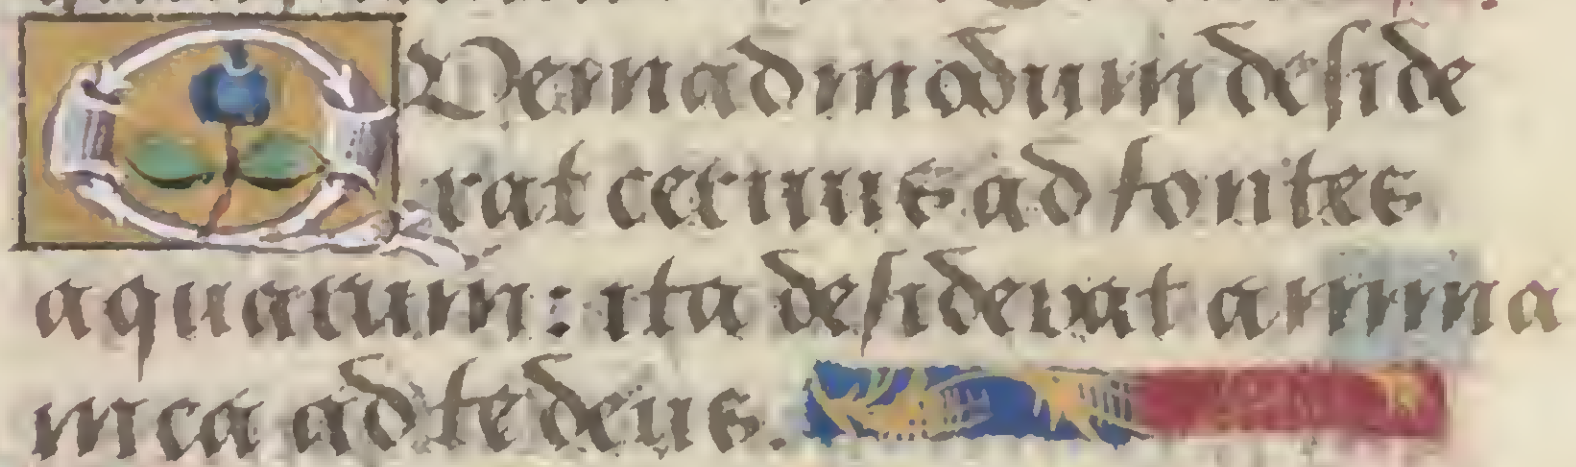 QUemadmodum deside
rat ceruus ad fontes
aquarum: ita desiderat anima
mea ad te deus.